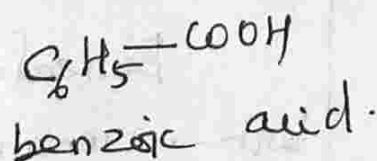 C₆H₅—COOH
benzoic acid.